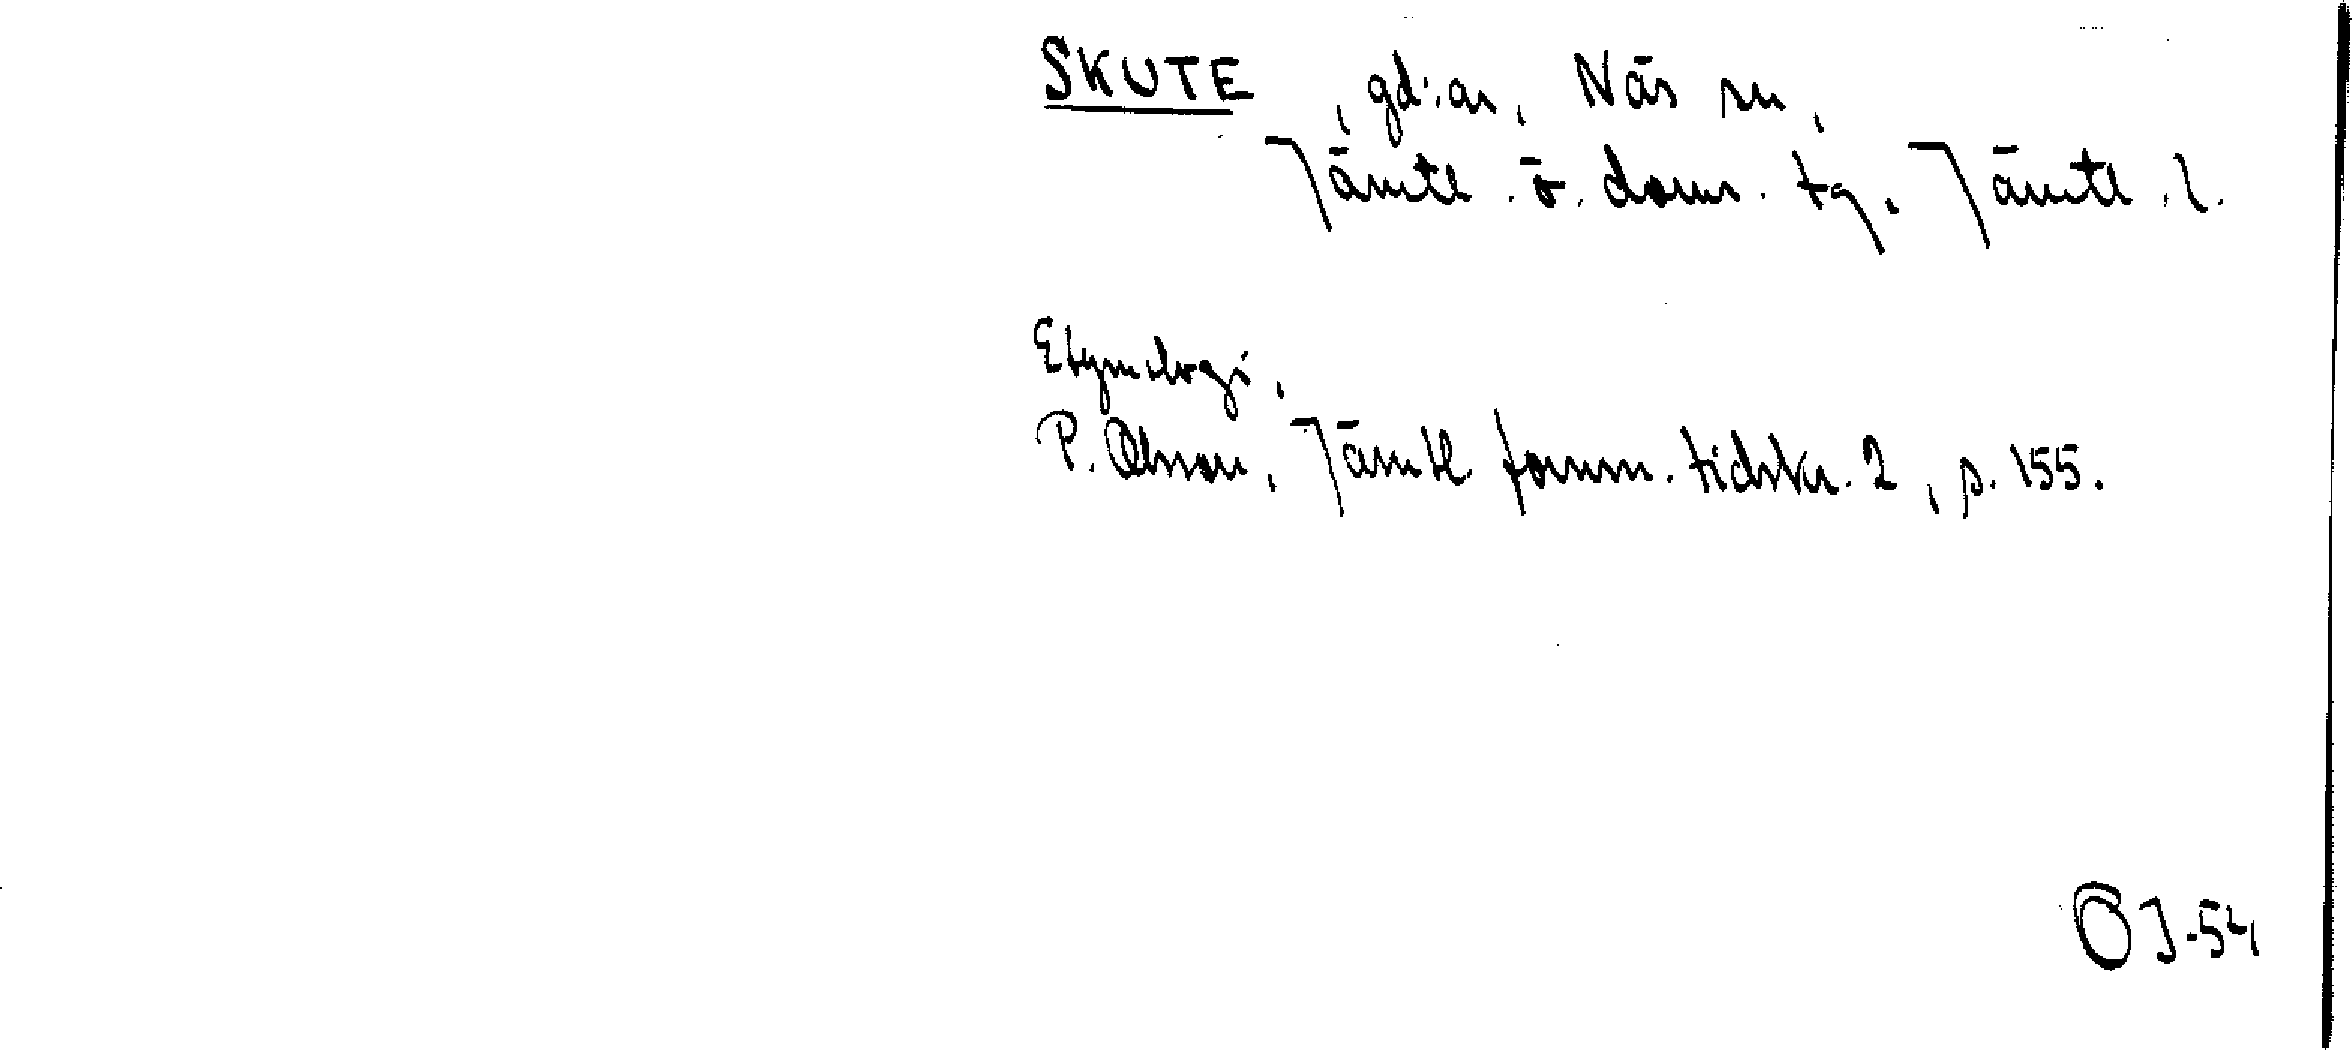 SKUTE, gd:ar, Näs sn,
Jämtl. ö. doms. tg. Jämtl. l.
Etymologi.
P. Olsson, Jämtl fornm. tidskr. 2, s. 155.
ÖJ-54